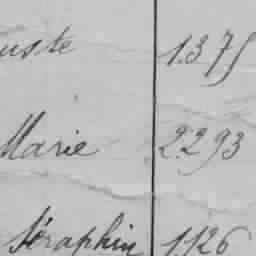 uste 1.375
Marie 2.293
Séraphin 1.126